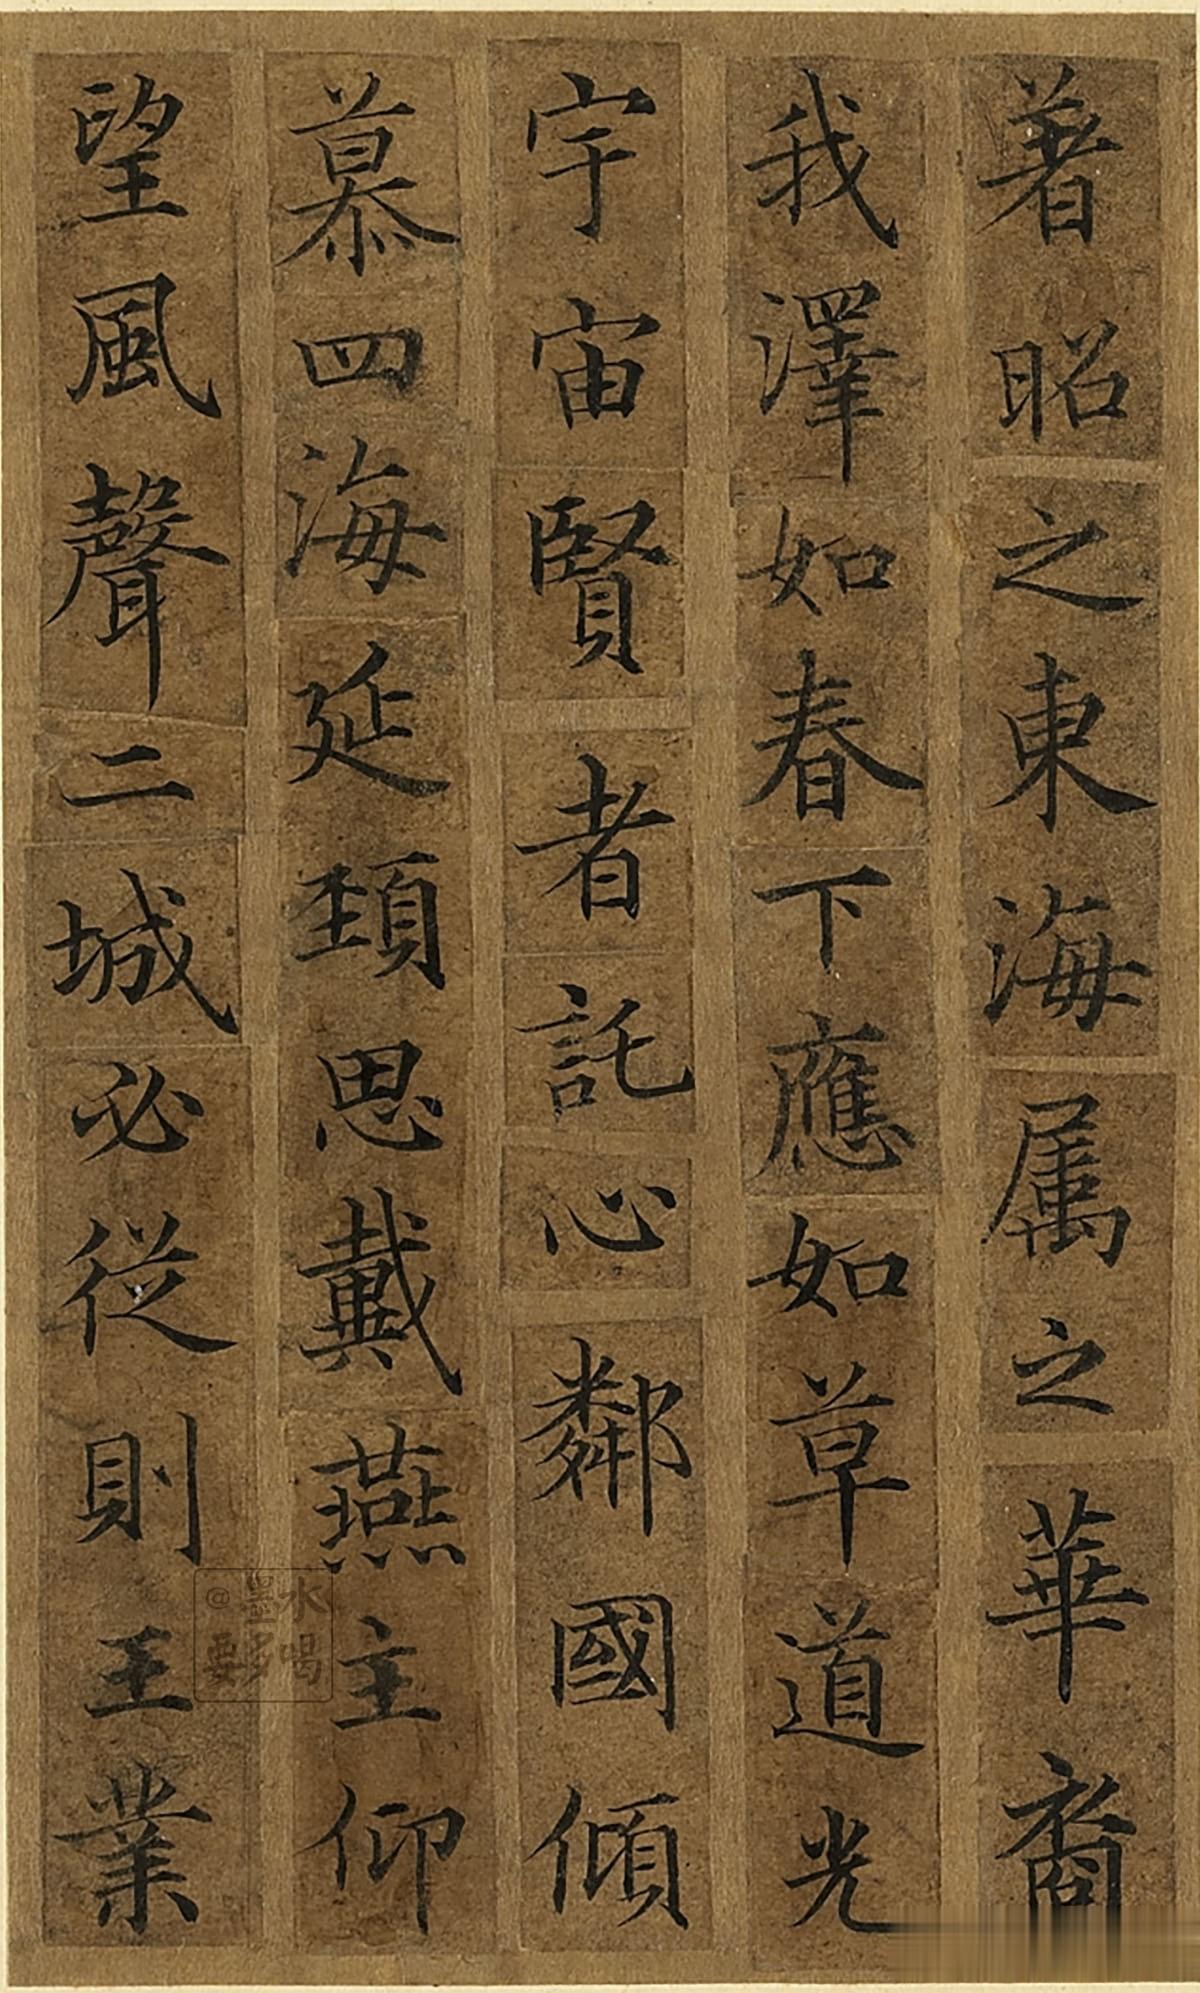 著昭之東海属之華裔
我澤如春下應如草道光
宇宙賢者託心鄰國傾
慕四海延頚思戴燕主仰
望風聲二城必従則王業
@墨水
要多喝